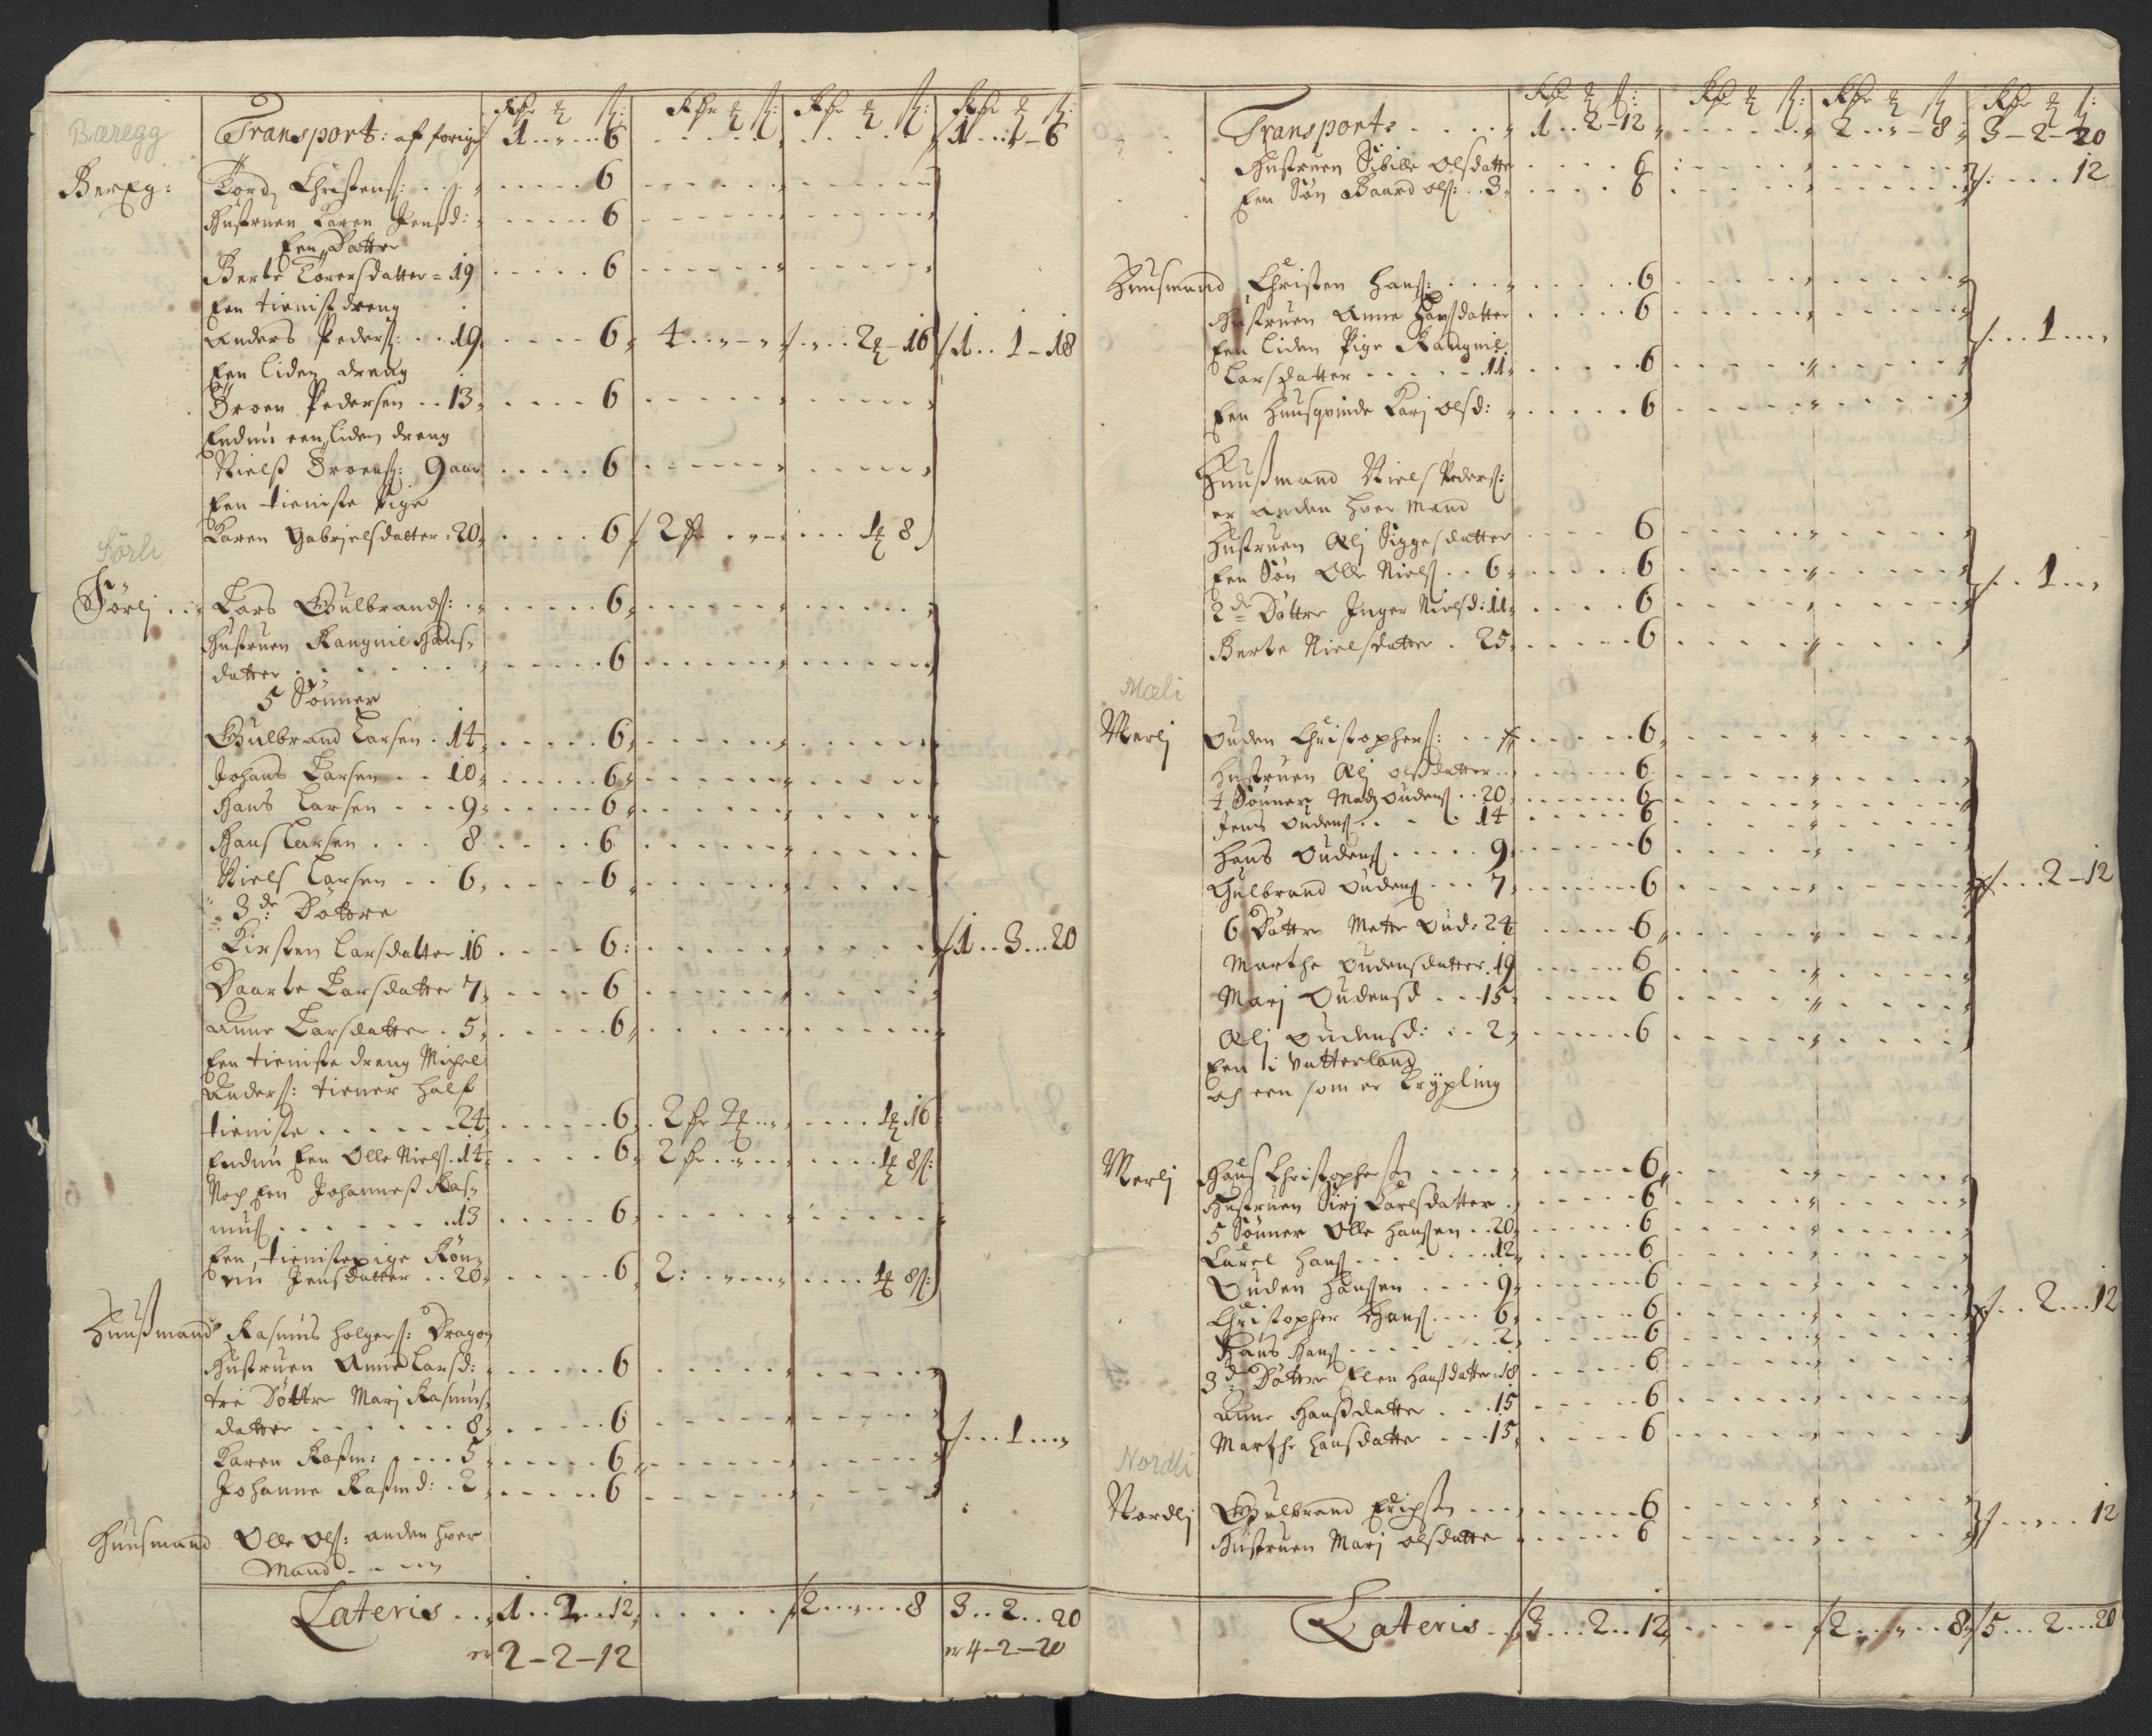 Rdr ℥ ß: Rdr ℥ ß: Rdr ℥ ß: Rdr ℥ ß:
Bæregg Transport: af forige 1..„...6 1...1-6
Berrg: Tord Christens: 6
Hustruen Karen Jensd: 6
Een Datter
Berte Torersdatter = 19 6
Een tienist dreng
Anders Peders: .. 19 6 4..„-„ „..2-16 1..1-18
Een liden dreng
Pedersen .. 13 6
Endnu een liden dreng
Niels 9 aar 6
Een tieniste Pige
Karen Gabrjelsdatter: 20 6 2 „- 1 8
Sørli
Sørlj Lars Gulbrands: 6
Hustruen Rangnil Hans-
datter 6
5 Sønner
Gulbrand Larsen . 14 6
Johans Larsen .. 10 6
Hans Larsen ... 9 6
Hans Larsen ... 8 6
Niels Larsen .. 6 6
3de Døttre
Kirsten Larsdatter 16 6 1..3..20
Daarte Larsdatter 7 6
Anne Larsdatter . 5 6
Een tieniste dreng Michel
Anders: tiener half
tieniste 24 6 2 2 1 16
Endnu Een Olle Niels. 14 6 2 1 8ß:
Noch Een Johannes Ras-
mus 13 6
Een tienistepige Røn-
nu Jensdatter .. 20 6 2: 1 8ß:
Huusmand Rasmus Holgers: Dragon
Hustruen Anne Larsd: 6
tre Døttre Marj Rasmus-
datter 8 6 1...
Karen Rasm: ... 5 6
Johanne Rasmd: . 2 6
Huusmand Olle Ols: anden hver
Mand
Lateris .. 1..2..12 2..„..8 3..2..20
er 2-2-12 er 4-2-20
Rdr ℥ ß: Rdr ℥ ß: Rdr ℥ ß Rdr ℥ ß:
Transport: 1..2-12 2..„-8 3-2-20
Hustruen Sibille Olsdatter 6
Een Søn Baard Ols: .. 3 6 12
Huusmand Christen Hans: 6
Hustruen Anne Hansdatter 6
Een liden Pige Rangnil 1...
Larsdatter 11 6
Een huusqvinde Karj Olsd: 6
Huusmand Niels Peders:
er anden hver Mand
Hustruen Alj Siggesdatter 6
Een Søn Olle Niels .. 6 6 1...
2de Døttre Inger Nielsd: 11 6
Berte Nielsdatter . 25 6
Mæli
Merlj Ouden Christophers: 6
Hustruen Alj Olsdatter 6
4 Sønner Mads Oudens .. 20 6
Jens Oudens 14 6
Hans Oudens 9 6
Gulbrand Oudens ... 7 6 2-12
6 Døttre Mette Oud: 24 6
Marthe Oudensdatter. 19 6
Marj Oudensd .. 15 6
Alj Oudensd: .. 2 6
Een i Vatterland
och een som er Krypling
Merlj Hans Christophersen 6
Hustruen Sirj Carlsdatter 6
5 Sønner Olle Hansen .. 20 6
Carel Hans 12 6
Ouden Hansen 9 6
Christopher Hans 6 6 2...12
Hans Hans 2 6
3de Døttre Elen Hansdatter 18 6
Anne Hansdatter .. 15 6
Marthe Hansdatter ... 15 6
Nordli
Nordlj Gulbrand Erichsen 6 12
Hustruen Marj Olsdatter 6
Lateris .. 3...2..12 2...„..8 5...2..20